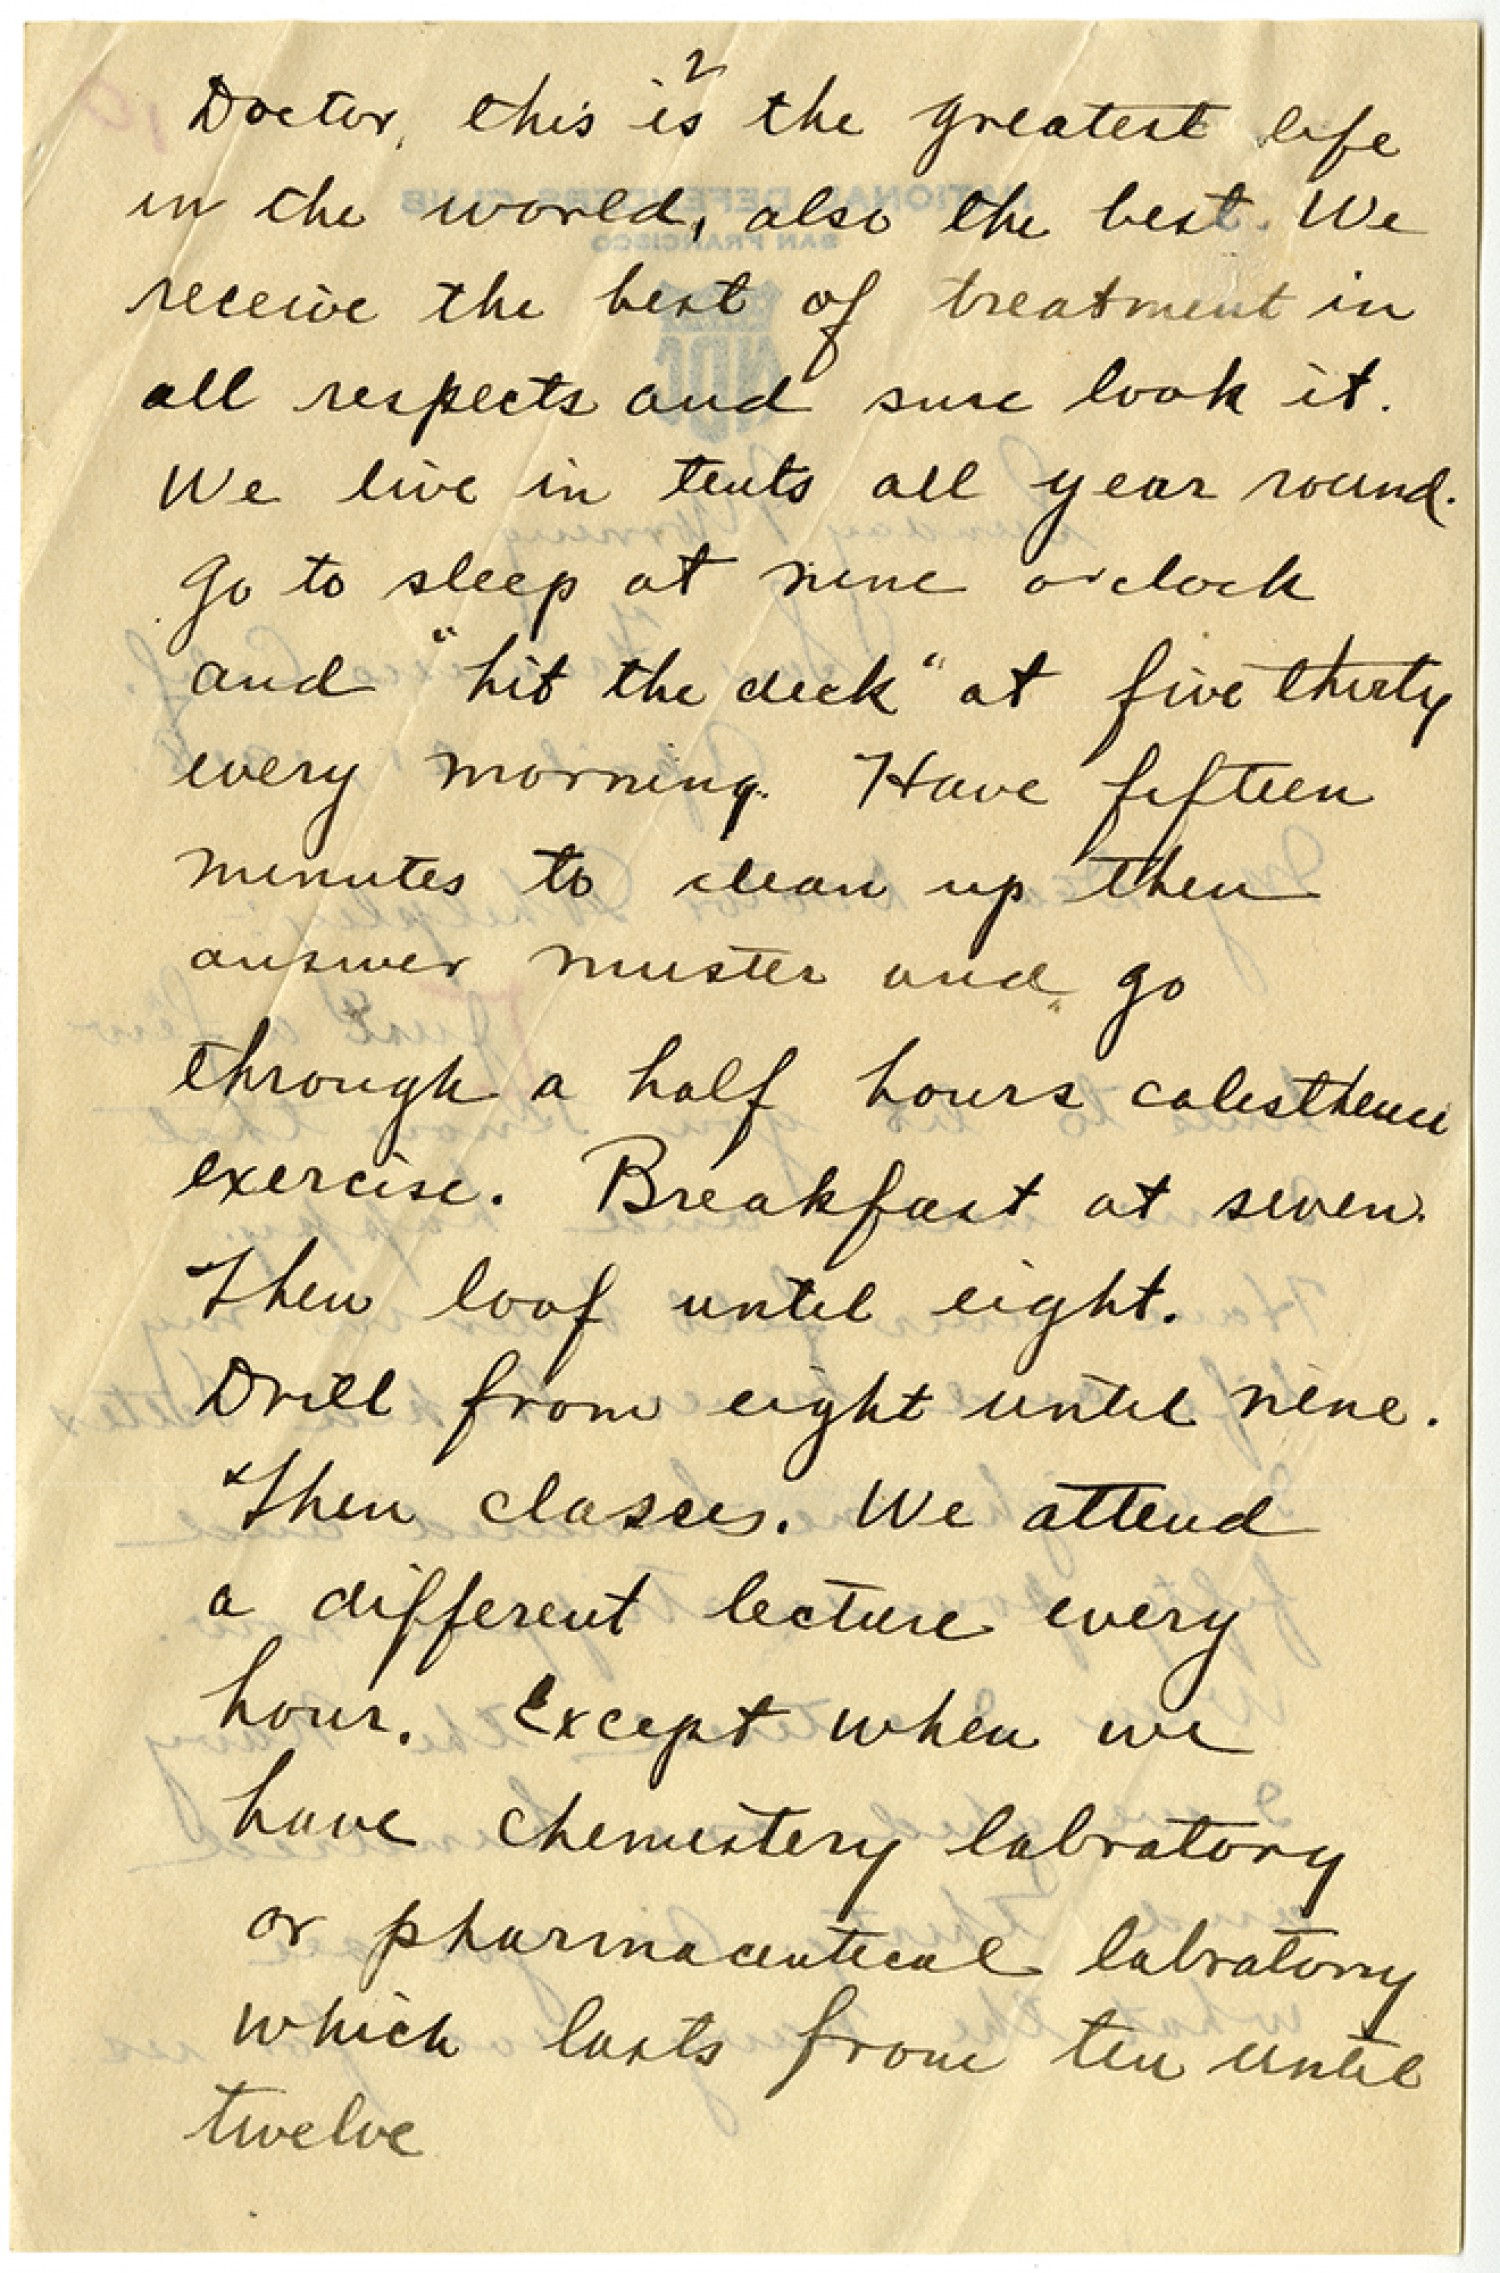 2
Doctor, this is the greatest life
in the world, also the best. We
receive the best of treatment in
all respects and sure look it.
We live in tents all year round.
Go to sleep at nine o'clock
and "hit the deck" at five thirty
every morning. Have fifteen
minutes to clean up then
answer muster and go
through a half hours calesthenic
exercise. Breakfast at seven.
Then loof until eight.
Drill from eight until nine.
Then classes. We attend
a different lecture every
hour. Except when we
have chemestery labratory
or pharmaceutical labratory
which lasts from ten until
twelve
NATIONAL DEFENDERS CLUB
SAN FRANCISCO
NDC